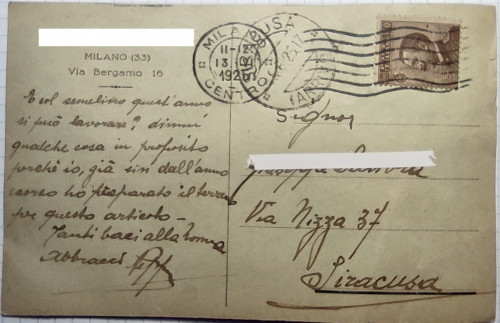 MILANO (33)
Via Bergamo 16
E col semetino quest'anno
si può lavorare? dimmi
qualche cosa in proposito
perchè io, già sin dall'anno
scorso ho preparato il terreno
per questo articolo -
Tanti baci alla nonna
Abbracci
MILANO
11-12
13
1925
CENTRO
SIRACUSA
Signor
Via Nizza 37
Siracusa